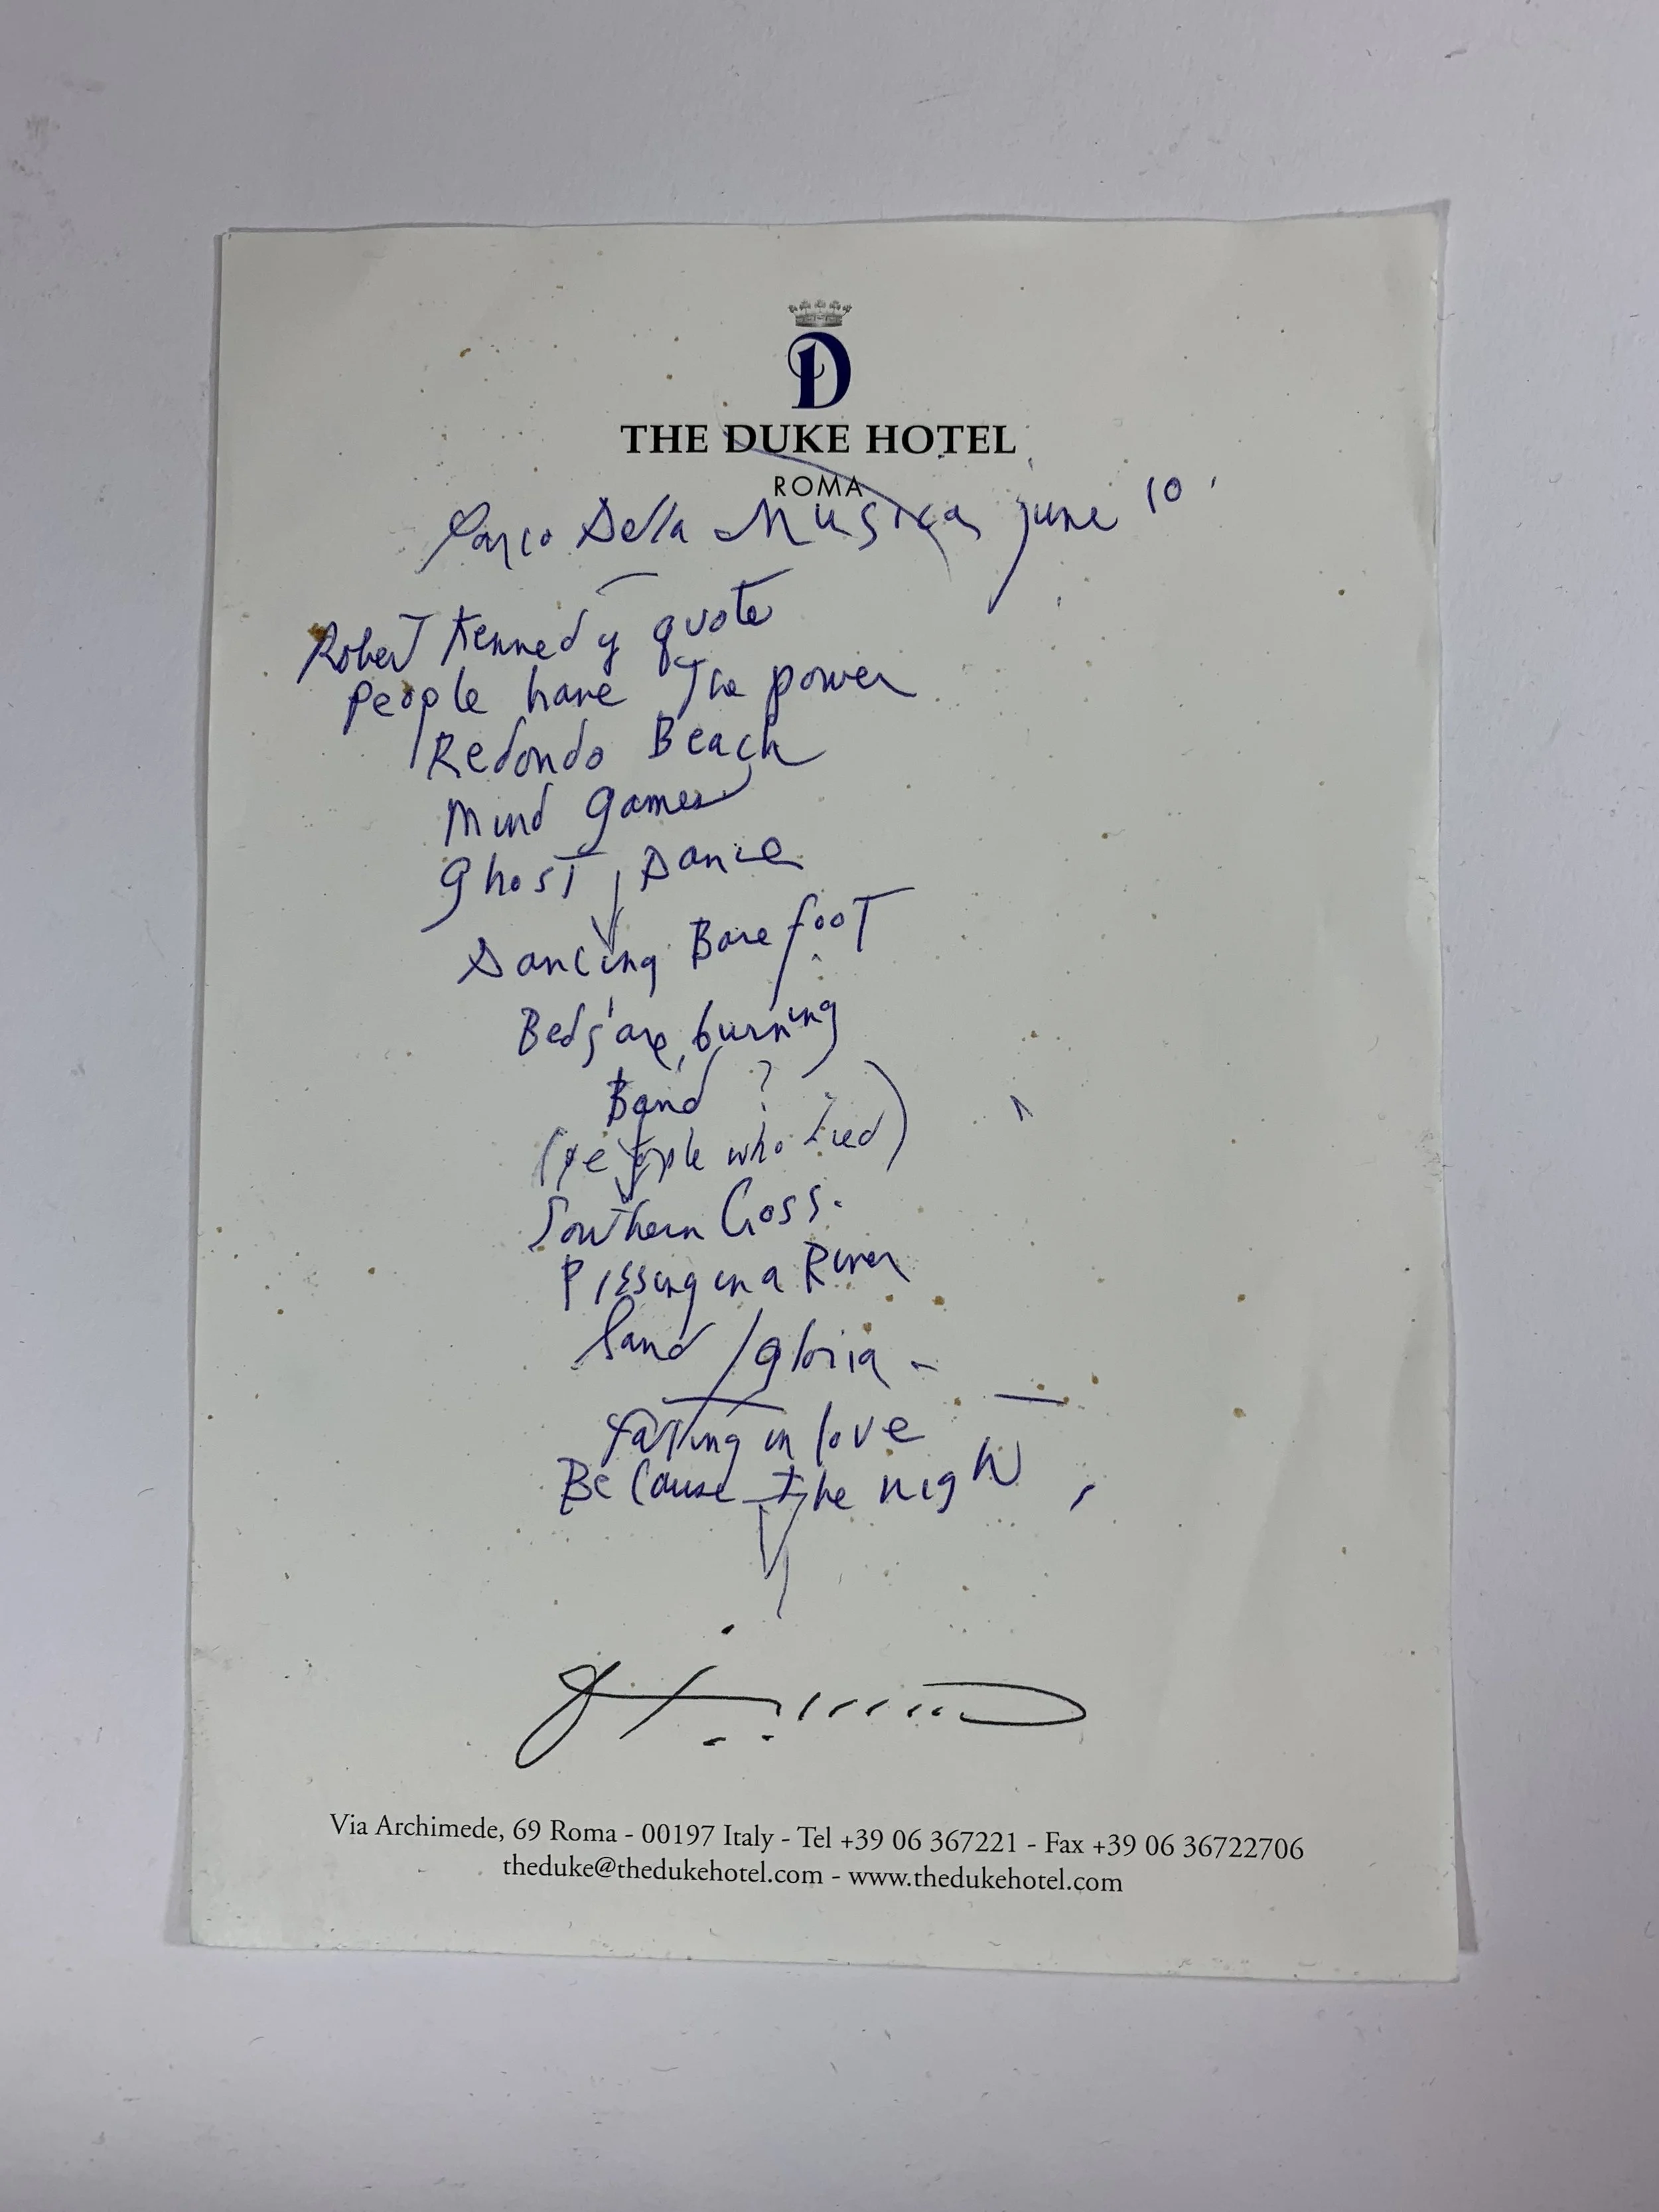 D
THE DUKE HOTEL
ROMA
Parco Della Musica June 10
Robert Kennedy quote
People have the power
Redondo Beach
Mind games
ghost Dance
Dancing Barefoot
Beds are burning
Band ?
(people who died)
Southern Cross.
Pissing in a River
land / gloria -
Falling in love
Because the night
Via Archimede, 69 Roma - 00197 Italy - Tel +39 06 367221 - Fax +39 06 36722706
theduke@thedukehotel.com - www.thedukehotel.com